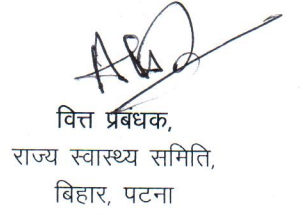 वित्त प्रबंधक,
राज्य स्वास्थ्य समिति,
बिहार, पटना